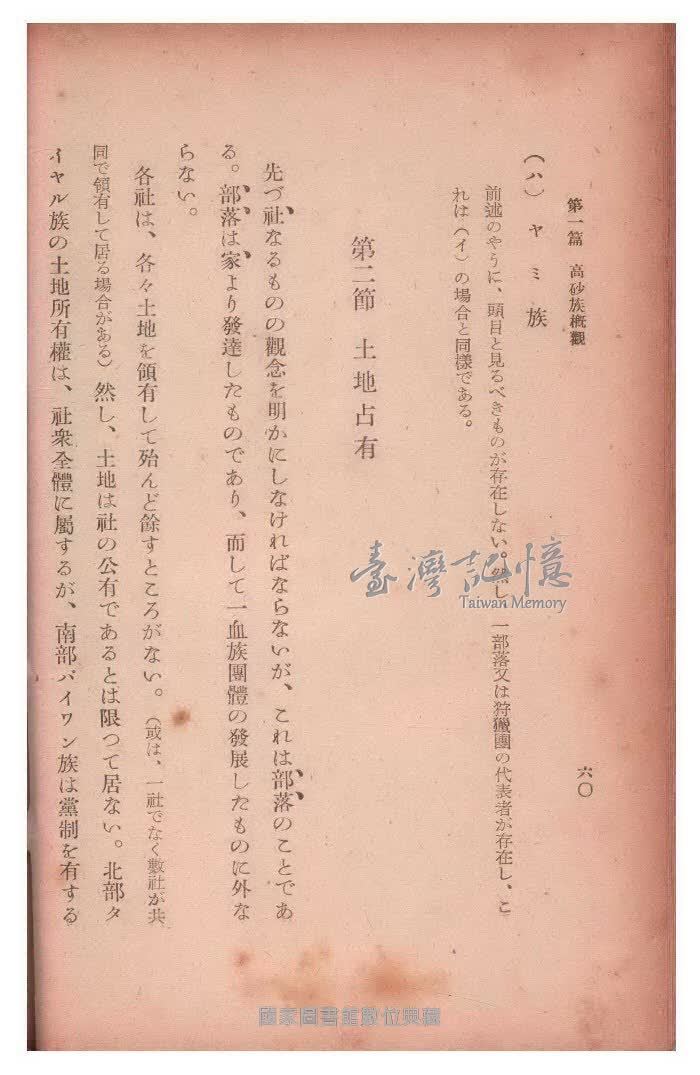 第一篇 高砂族概觀
六〇
(ハ) ヤミ族
前述のやうに、頭目と見るべきものが存在しない。然し、一部落又は狩獵團の代表者が存在し、こ
れは(イ)の場合と同樣である。
第二節 土地占有
先づ社なるものの觀念を明かにしなければならないが、これは部落のことであ
る。部落は家より發達したものであり、而して一血族團體の發展したものに外な
らない。
各社は、各々土地を領有して殆んど餘すところがない。(或は、一社でなく數社が共
同で領有して居る場合がある) 然し、土地は社の公有であるとは限つて居ない。北部タ
イヤル族の土地所有權は、社衆全體に屬するが、南部パイワン族は黨制を有する
臺灣記憶
Taiwan Memory
國家圖書館數位典藏